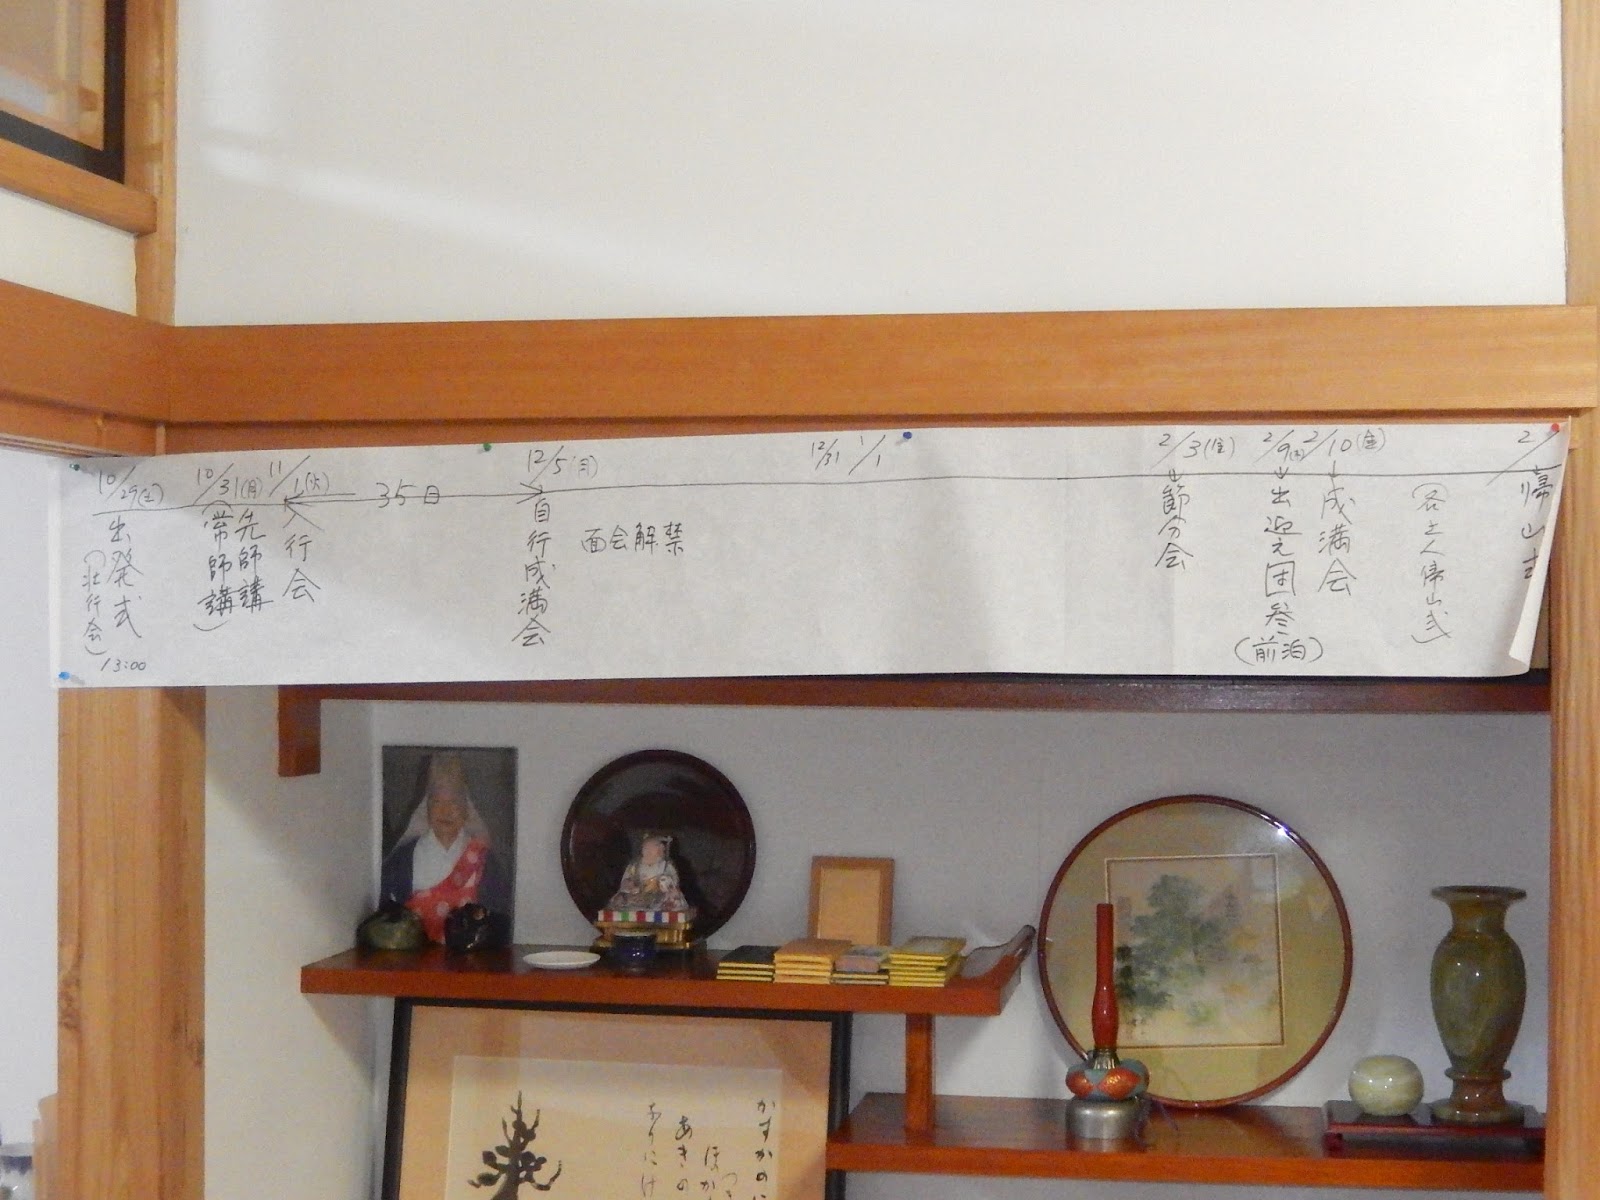 10/29(土)
出発式
(壮行会)
13:00
10/31(月)
先師講
(常師講)
11/1(火)
入行会
35日
12/5(月)
自行成満会
面会解禁
12/31
1/1
2/3(金)
節分会
2/9(木)
出迎え団参
(前泊)
2/10(金)
成満会
(各上人帰山式)
2/
帰山式
かすかのに
つき
ほか
あきの
ありにけ